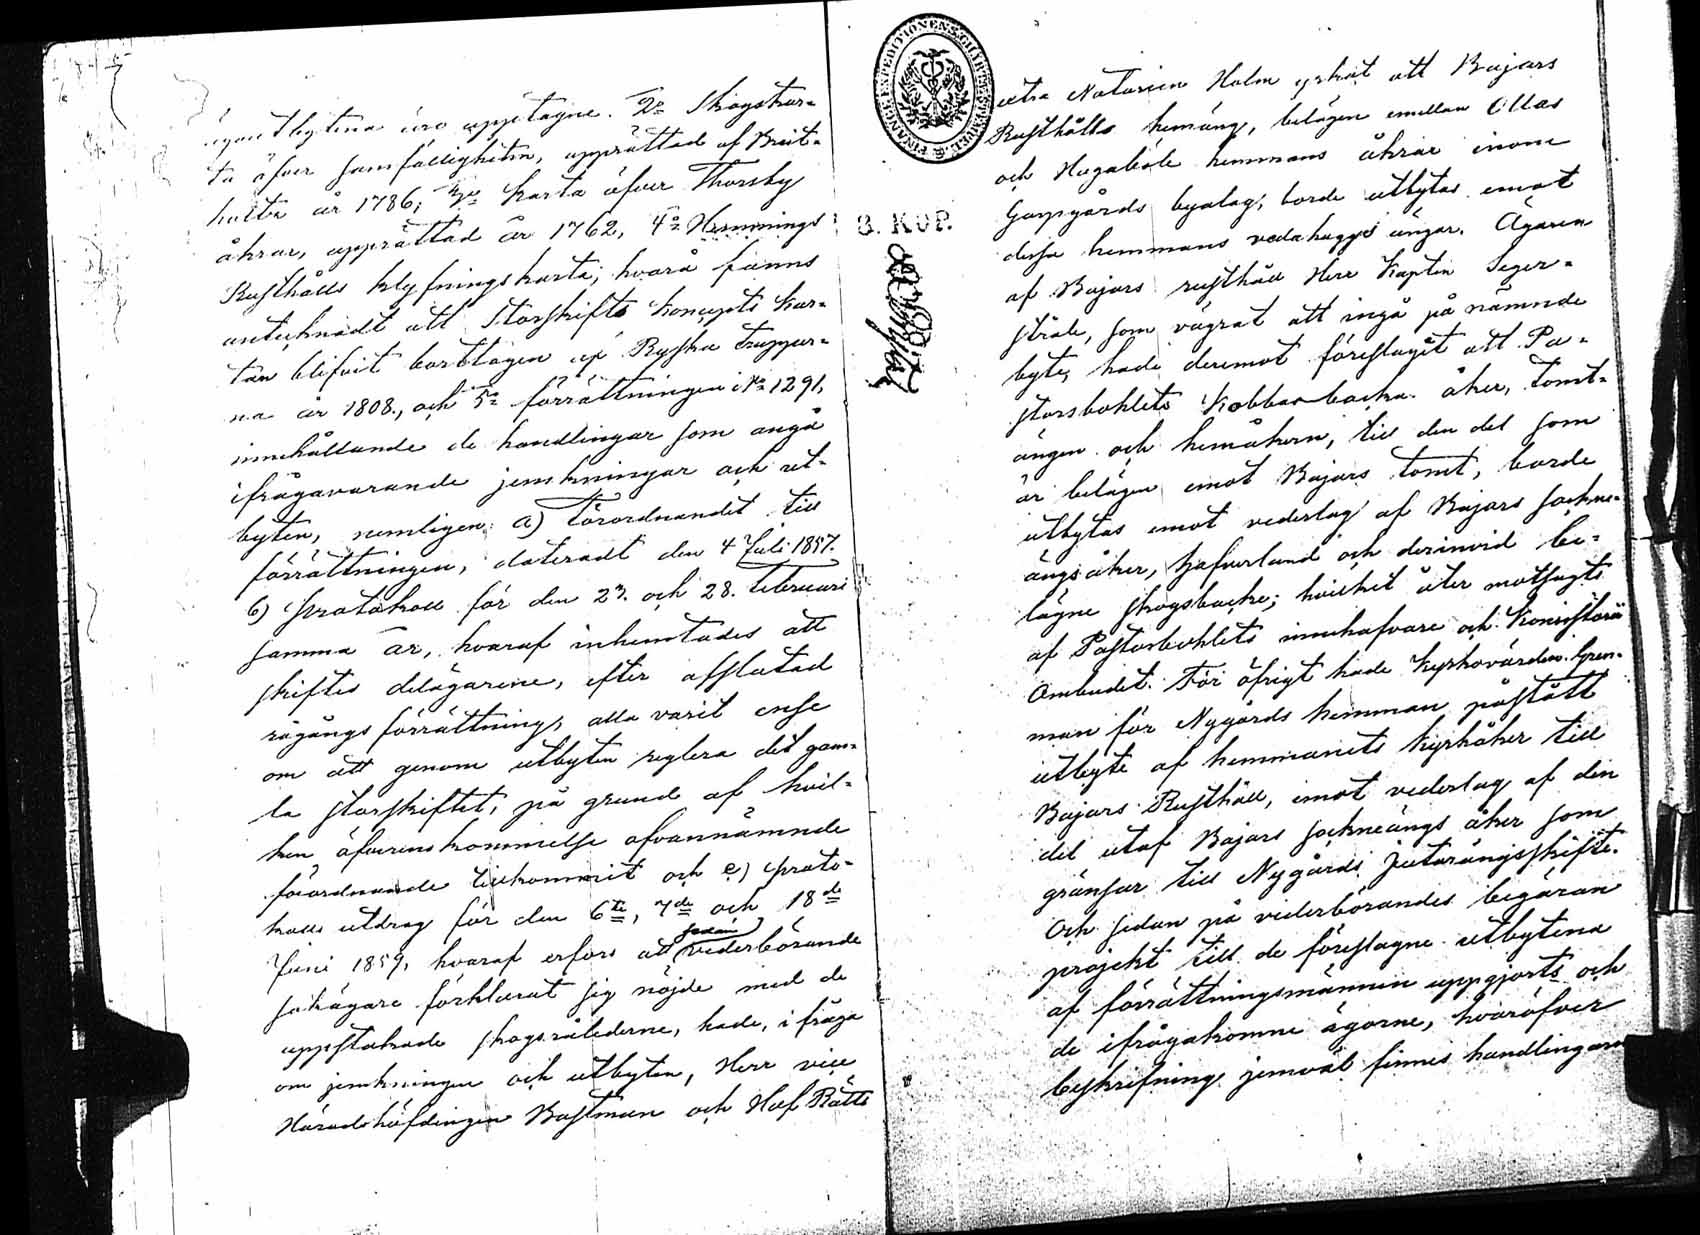 äro upptagne. 2o Skogskar-
ta öfver samfälligheten, upprättad af Breit-
holtz år 1786, 3o karta öfver Thorsby
åkrar, upprättad år 1762, 4o Hemmings
Rusthålls klyfningskarta, hvarå fanns
antecknadt att Storskifts koncepts kar-
tan blifvit borttagen af Ryska trupper-
na år 1808, och 5o förrättningen i No 1291,
innehållande de handlingar som angå
ifrågavarande jemkningar och ut-
byten, nemligen: a) Förordnandet till
förrättningen, dateradt den 4 Juli 1857.
b) Protokoll för den 27. och 28. Februari
samma år, hvaraf inhemtades att
skiftes delägarene, efter afslutad
rågångs förrättning, alla varit ense
om att genom utbyten reglera det gam-
la storskiftet, på grund af hvil-
ken öfverenskommelse ofvannämnde
förordnande tillkommit och c) Proto-
kolls utdrag för den 6te, 7de och 18de
Juni 1859, hvaraf erfors att sedan vederbörande
sakägare förklarat sig nöjde med de
uppstakade skogsrålederne, hade, i fråga
om jemkningen och utbyten, Herr vice
Häradshöfdingen Bastman och Hof Rätts
FINANCE EXPEDITIONENS CHARTÆ SIGILL.
3. KOP.
extra Notarien Holm yrkat att Bajars
Rusthålls hemäng, belägen emellan Ollas
och Hagaböle hemmans åkrar inom
Gaspgårds byalag, borde utbytas emot
dessa hemmans vedahagges ängar. Ägaren
af Bajars rusthåll Herr Kapten Seger-
stråle, som vägrat att ingå på nämnde
byte, hade deremot föreslagit att Pa-
storsbohlets Kobbas backa åker, tomt-
ängen och hemåkern, till den del som
är belägen emot Bajars tomt, borde
utbytas emot vederlag af Bajars sockne-
ängsåker, Hafverland och derinvid be-
lägne skogsbacke; hvilket åter motsagts
af Pastorsbohlets innehafvare och Konsistorii
Ombudet. För öfrigt hade Kyrkovärden Gren-
man för Nygårds hemman påstått
utbyte af hemmanets Kyrkåker till
Bajars Rusthåll, emot vederlag af den
del utaf Bajars sockneängs åker som
gränsar till Nygårds Jutarängsskifte.
Och sedan på vederbörandes begäran
projekt till de föreslagne utbytena
af förrättningsmännen uppgjorts och
de ifrågakomne ägorne, hvaröfver
beskrifning jemväl finnes handlingarne